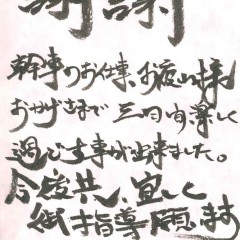 感謝
幹事のお仕事、お疲れ様
おかげさまで三日間楽しく
過ごす事が出来ました。
今後共、宜しく
御指導願います